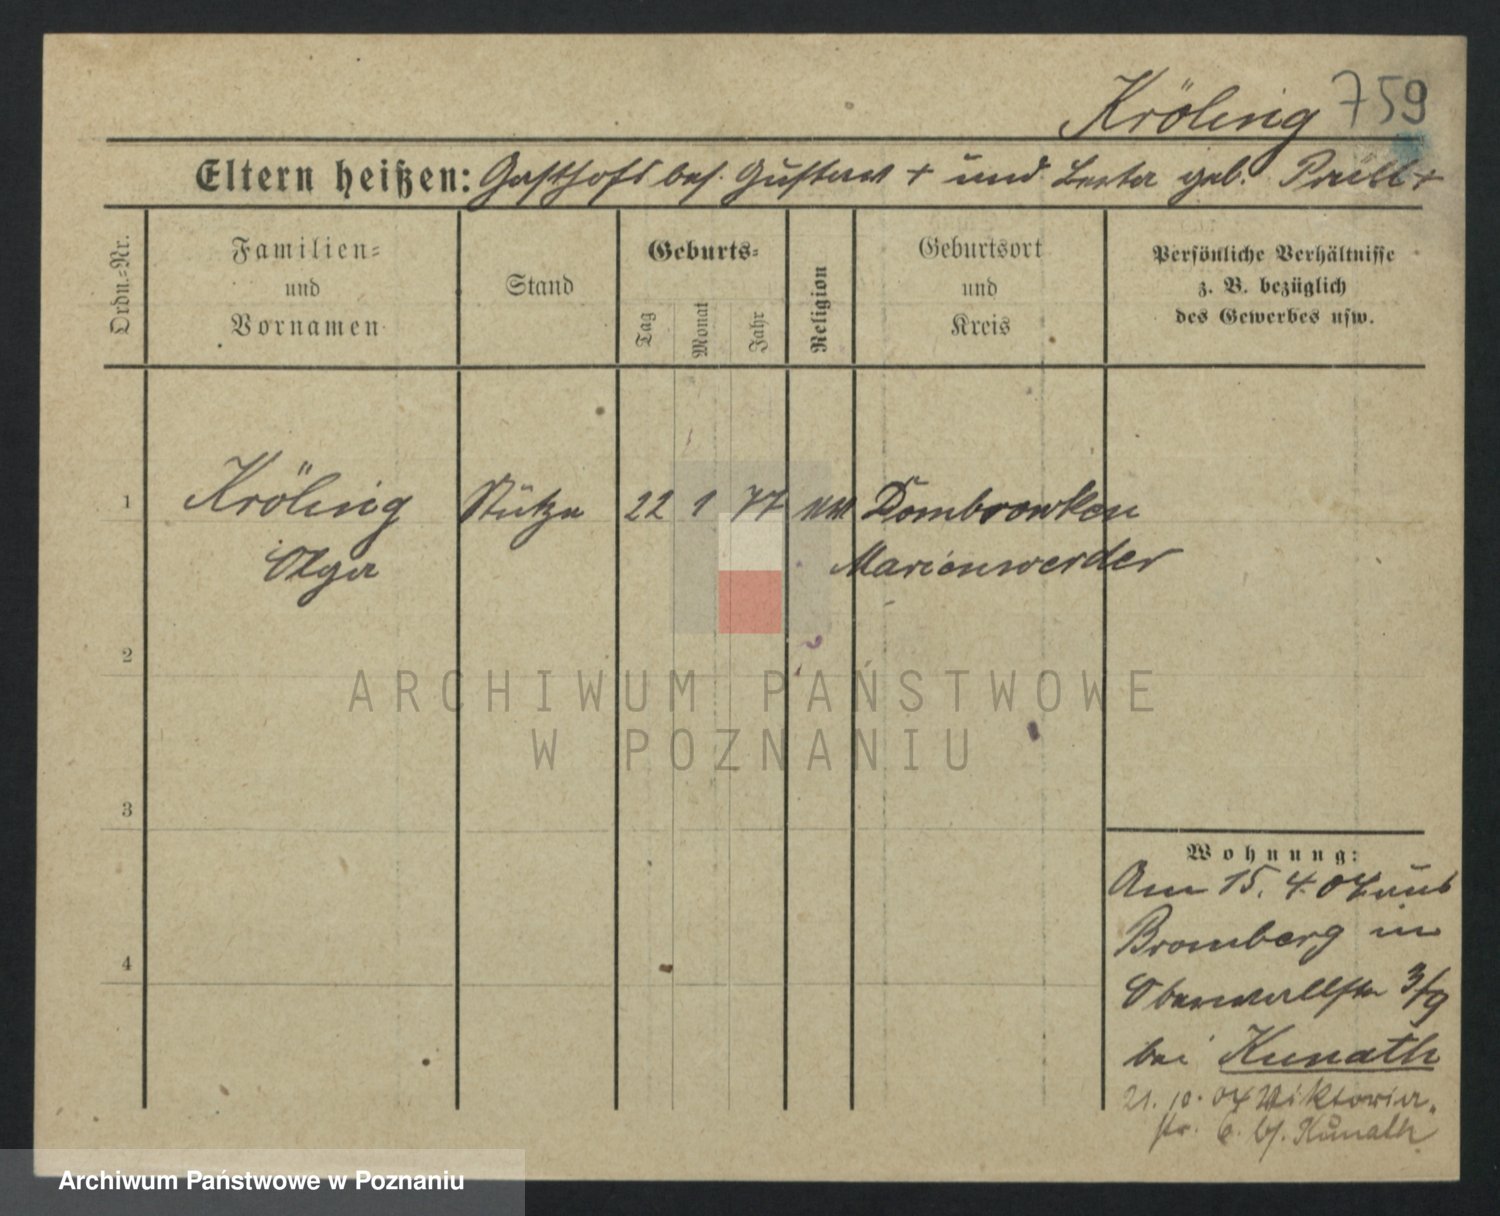 Kröling 759
Eltern heißen: Gasthofsbes. Gustav + und Berta geb. +
Ordn.=Nr.
Familien=
und
Vornamen
Stand
Geburts=
Tag
Monat
Jahr
Religion
Geburtsort
und
Kreis
Persönliche Verhältnisse
z. B. bezüglich
des Gewerbes usw.
1
Kröling
Olga
Stütze
22 1 77
Dombrowken
Marienwerder
2
3
4
ARCHIWUM PAŃSTWOWE
W POZNANIU
Wohnung:
Am 15. 4. 04 aus
Bromberg in
Oberwallstr 3/9
bei Kunath
21. 10. 04 Viktoria-
str. b/. Kunath
Archiwum Państwowe w Poznaniu